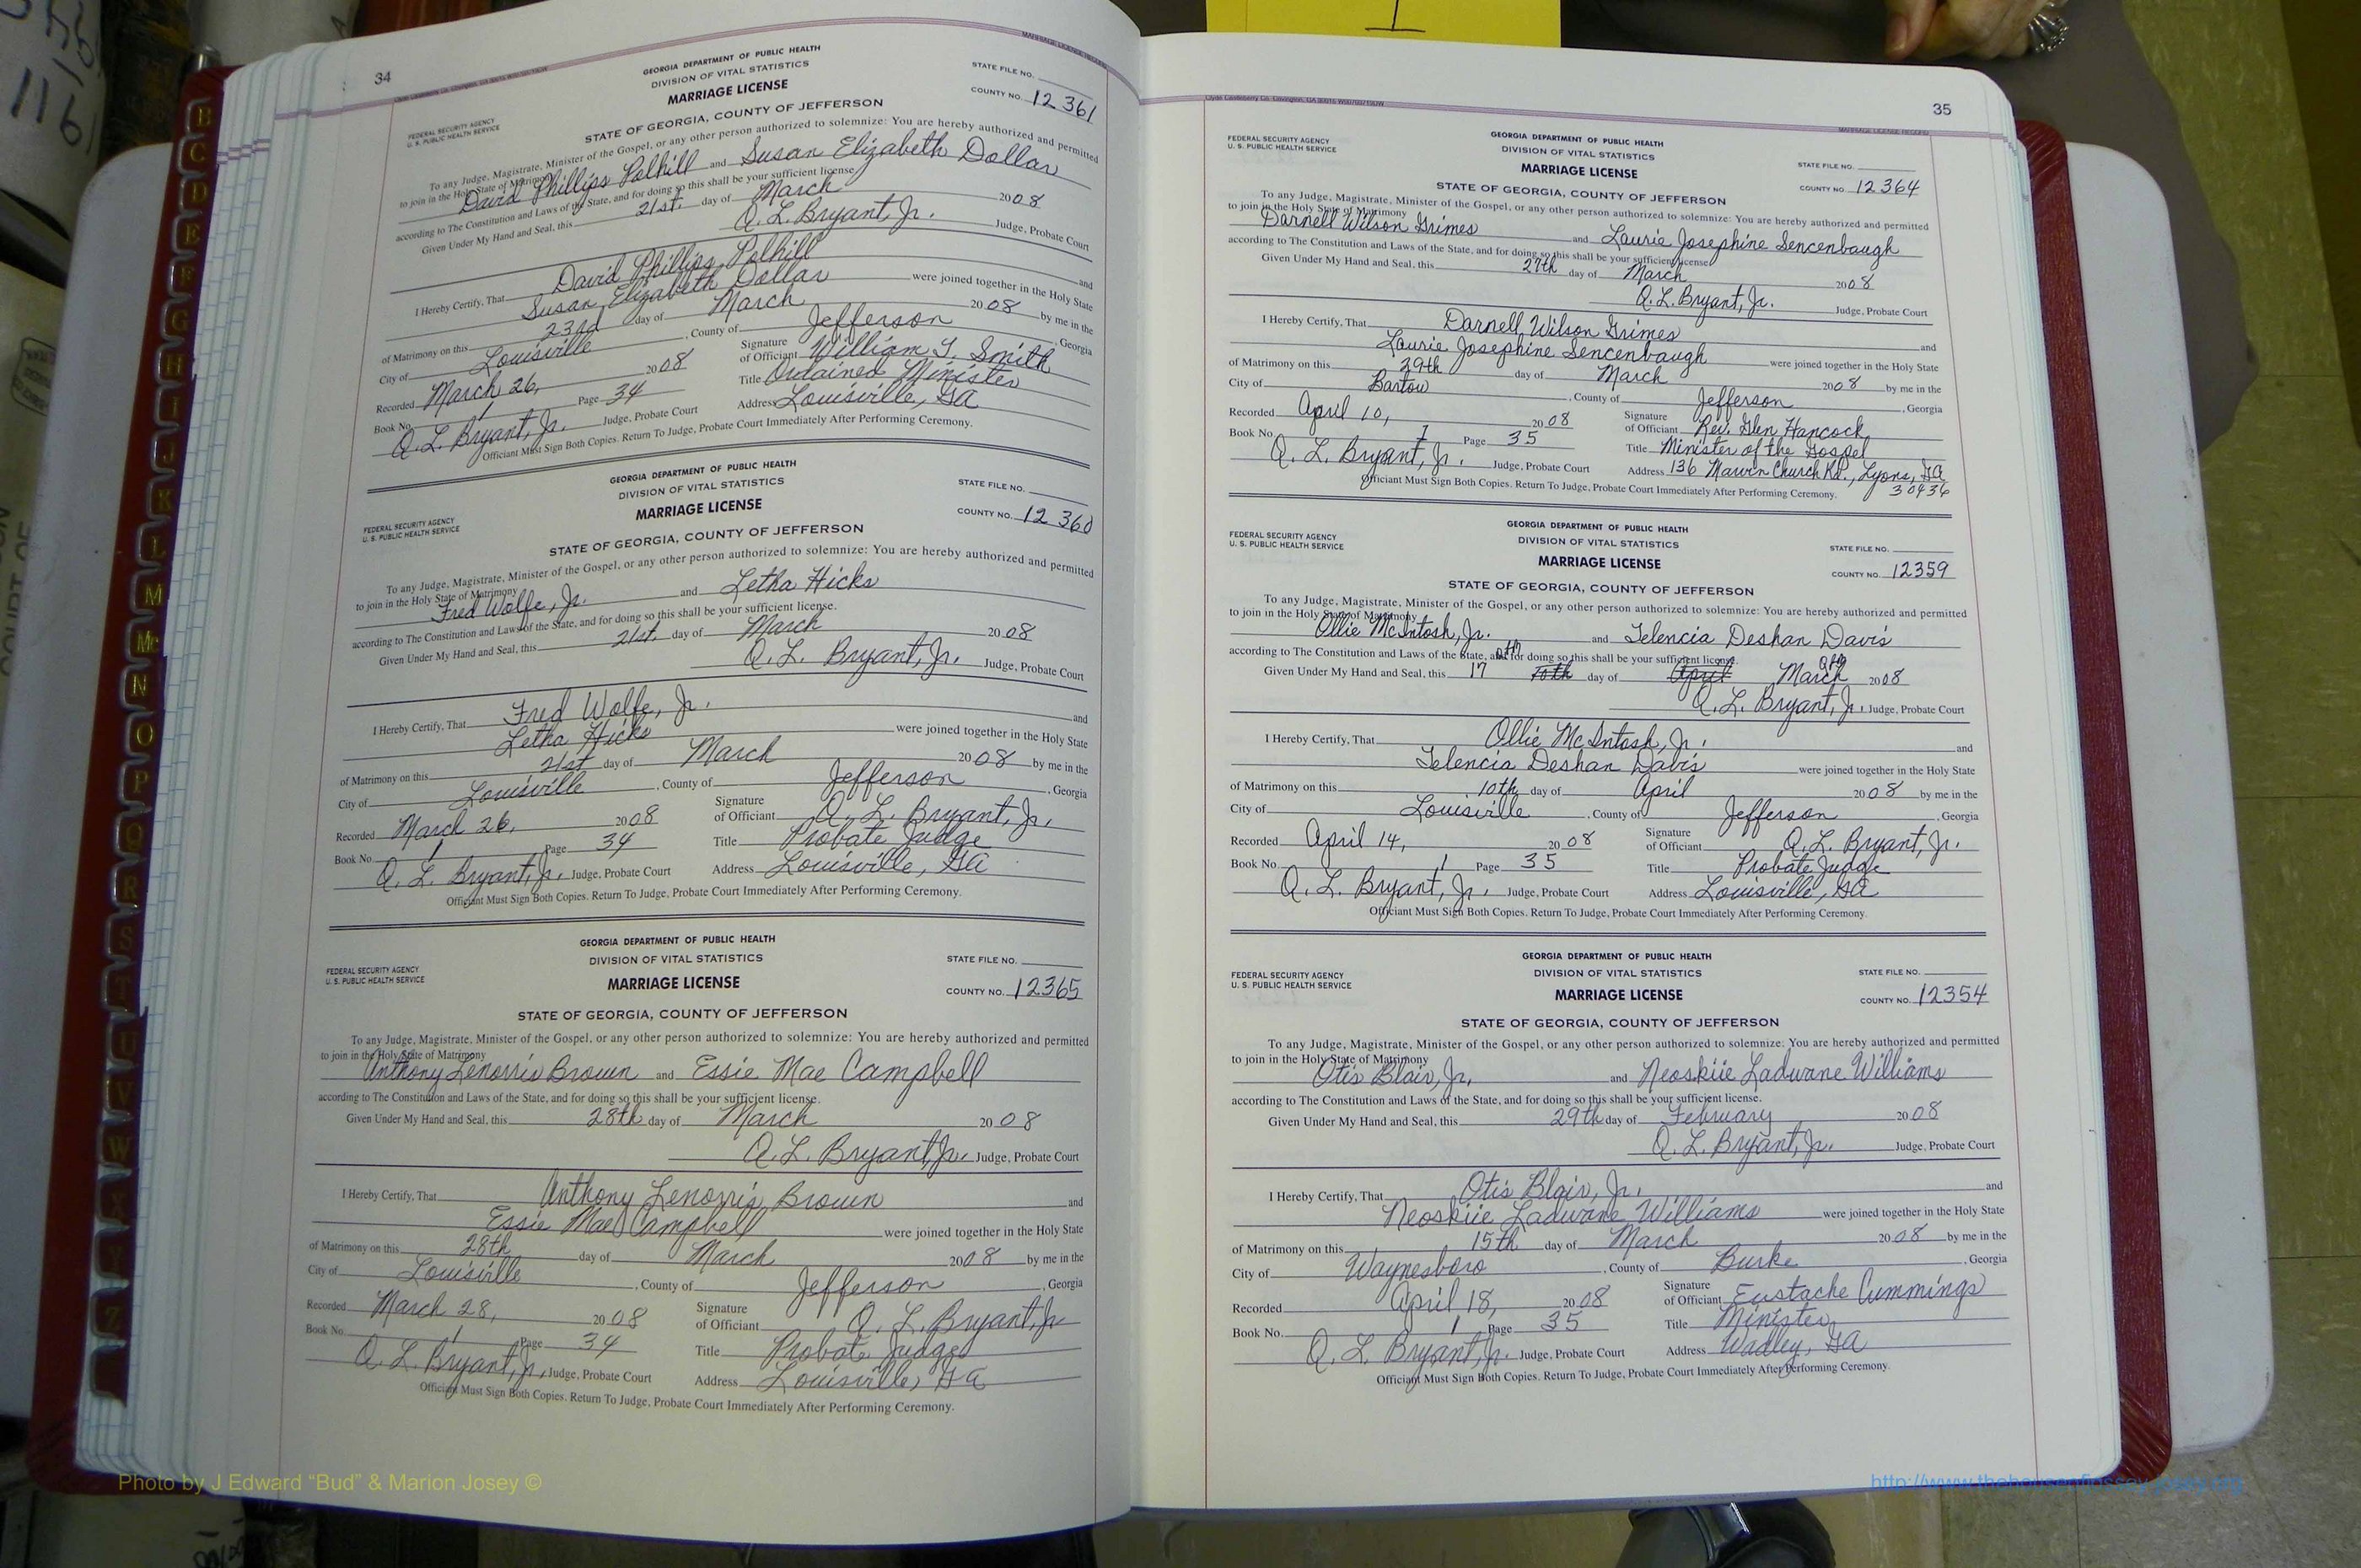 34
GEORGIA DEPARTMENT OF PUBLIC HEALTH
DIVISION OF VITAL STATISTICS
MARRIAGE LICENSE
FEDERAL SECURITY AGENCY
U. S. PUBLIC HEALTH SERVICE
STATE FILE NO.
COUNTY NO. 12361
STATE OF GEORGIA, COUNTY OF JEFFERSON
To any Judge, Magistrate, Minister of the Gospel, or any other person authorized to solemnize: You are hereby authorized and permitted
to join in the Holy State of Matrimony
David Phillips Polhill and Susan Elizabeth Dollar
according to The Constitution and Laws of the State, and for doing so this shall be your sufficient license.
Given Under My Hand and Seal, this 21st. day of March 2008
Q. L. Bryant, Jr. Judge, Probate Court
I Hereby Certify, That David Phillips Polhill and
Susan Elizabeth Dollar were joined together in the Holy State
of Matrimony on this 23rd day of March 2008 by me in the
City of Louisville, County of Jefferson, Georgia
Recorded March 26, 2008 Signature of Officiant William T. Smith
Book No. 1 Page 34 Title Ordained Minister
Q. L. Bryant, Jr. Judge, Probate Court Address Louisville, GA
Officiant Must Sign Both Copies. Return To Judge, Probate Court Immediately After Performing Ceremony.
GEORGIA DEPARTMENT OF PUBLIC HEALTH
DIVISION OF VITAL STATISTICS
MARRIAGE LICENSE
FEDERAL SECURITY AGENCY
U. S. PUBLIC HEALTH SERVICE
STATE FILE NO.
COUNTY NO. 12360
STATE OF GEORGIA, COUNTY OF JEFFERSON
To any Judge, Magistrate, Minister of the Gospel, or any other person authorized to solemnize: You are hereby authorized and permitted
to join in the Holy State of Matrimony
Fred Wolfe, Jr. and Letha Hicks
according to The Constitution and Laws of the State, and for doing so this shall be your sufficient license.
Given Under My Hand and Seal, this 21st day of March 2008
Q. L. Bryant, Jr. Judge, Probate Court
I Hereby Certify, That Fred Wolfe, Jr. and
Letha Hicks were joined together in the Holy State
of Matrimony on this 21st day of March 2008 by me in the
City of Louisville, County of Jefferson, Georgia
Recorded March 26, 2008 Signature of Officiant Q. L. Bryant, Jr.
Book No. 1 Page 34 Title Probate Judge
Q. L. Bryant, Jr. Judge, Probate Court Address Louisville, GA
Officiant Must Sign Both Copies. Return To Judge, Probate Court Immediately After Performing Ceremony.
GEORGIA DEPARTMENT OF PUBLIC HEALTH
DIVISION OF VITAL STATISTICS
MARRIAGE LICENSE
FEDERAL SECURITY AGENCY
U. S. PUBLIC HEALTH SERVICE
STATE FILE NO.
COUNTY NO. 12365
STATE OF GEORGIA, COUNTY OF JEFFERSON
To any Judge, Magistrate, Minister of the Gospel, or any other person authorized to solemnize: You are hereby authorized and permitted
to join in the Holy State of Matrimony
Anthony Lenorris Brown and Essie Mae Campbell
according to The Constitution and Laws of the State, and for doing so this shall be your sufficient license.
Given Under My Hand and Seal, this 28th day of March 2008
Q. L. Bryant, Jr. Judge, Probate Court
I Hereby Certify, That Anthony Lenorris Brown and
Essie Mae Campbell were joined together in the Holy State
of Matrimony on this 28th day of March 2008 by me in the
City of Louisville, County of Jefferson, Georgia
Recorded March 28, 2008 Signature of Officiant Q. L. Bryant, Jr
Book No. 1 Page 34 Title Probate Judge
Q. L. Bryant, Jr. Judge, Probate Court Address Louisville, GA
Officiant Must Sign Both Copies. Return To Judge, Probate Court Immediately After Performing Ceremony.
35
GEORGIA DEPARTMENT OF PUBLIC HEALTH
DIVISION OF VITAL STATISTICS
MARRIAGE LICENSE
FEDERAL SECURITY AGENCY
U. S. PUBLIC HEALTH SERVICE
STATE FILE NO.
COUNTY NO. 12364
STATE OF GEORGIA, COUNTY OF JEFFERSON
To any Judge, Magistrate, Minister of the Gospel, or any other person authorized to solemnize: You are hereby authorized and permitted
to join in the Holy State of Matrimony
Darnell Wilson Grimes and Laurie Josephine Sencenbaugh
according to The Constitution and Laws of the State, and for doing so this shall be your sufficient license
Given Under My Hand and Seal, this 27th day of March 2008
Q. L. Bryant, Jr. Judge, Probate Court
I Hereby Certify, That Darnell Wilson Grimes and
Laurie Josephine Sencenbaugh were joined together in the Holy State
of Matrimony on this 29th day of March 2008 by me in the
City of Bartow, County of Jefferson, Georgia
Recorded April 10, 2008 Signature of Officiant Rev. Glen Hancock
Book No. 1 Page 35 Title Minister of the Gospel
Q. L. Bryant, Jr. Judge, Probate Court Address 136 Marvin Church Rd., Lyons, GA
30436
Officiant Must Sign Both Copies. Return To Judge, Probate Court Immediately After Performing Ceremony.
GEORGIA DEPARTMENT OF PUBLIC HEALTH
DIVISION OF VITAL STATISTICS
MARRIAGE LICENSE
FEDERAL SECURITY AGENCY
U. S. PUBLIC HEALTH SERVICE
STATE FILE NO.
COUNTY NO. 12359
STATE OF GEORGIA, COUNTY OF JEFFERSON
To any Judge, Magistrate, Minister of the Gospel, or any other person authorized to solemnize: You are hereby authorized and permitted
to join in the Holy State of Matrimony
Ollie McIntosh, Jr. and Telencia Deshan Davis
according to The Constitution and Laws of the State, and for doing so this shall be your sufficient license.
Given Under My Hand and Seal, this 17 10th day of April March 2008
Q. L. Bryant, Jr. Judge, Probate Court
I Hereby Certify, That Ollie McIntosh, Jr. and
Telencia Deshan Davis were joined together in the Holy State
of Matrimony on this 10th day of April 2008 by me in the
City of Louisville, County of Jefferson, Georgia
Recorded April 14, 2008 Signature of Officiant Q. L. Bryant, Jr.
Book No. 1 Page 35 Title Probate Judge
Q. L. Bryant, Jr. Judge, Probate Court Address Louisville, GA
Officiant Must Sign Both Copies. Return To Judge, Probate Court Immediately After Performing Ceremony.
GEORGIA DEPARTMENT OF PUBLIC HEALTH
DIVISION OF VITAL STATISTICS
MARRIAGE LICENSE
FEDERAL SECURITY AGENCY
U. S. PUBLIC HEALTH SERVICE
STATE FILE NO.
COUNTY NO. 12354
STATE OF GEORGIA, COUNTY OF JEFFERSON
To any Judge, Magistrate, Minister of the Gospel, or any other person authorized to solemnize: You are hereby authorized and permitted
to join in the Holy State of Matrimony
Otis Blair, Jr. and Neoskiie Ladwane Williams
according to The Constitution and Laws of the State, and for doing so this shall be your sufficient license.
Given Under My Hand and Seal, this 29th day of February 2008
Q. L. Bryant, Jr. Judge, Probate Court
I Hereby Certify, That Otis Blair, Jr. and
Neoskiie Ladwane Williams were joined together in the Holy State
of Matrimony on this 15th day of March 2008 by me in the
City of Waynesboro, County of Burke, Georgia
Recorded April 18, 2008 Signature of Officiant Eustache Cummings
Book No. 1 Page 35 Title Minister
Q. L. Bryant, Jr. Judge, Probate Court Address Wadley, GA
Officiant Must Sign Both Copies. Return To Judge, Probate Court Immediately After Performing Ceremony.
B
C
D
E
F
G
H
I
J
K
L
M
Mc
N
O
P
Q
R
S
T
U
V
W
X
Y
Z
Photo by J Edward “Bud” & Marion Josey ©